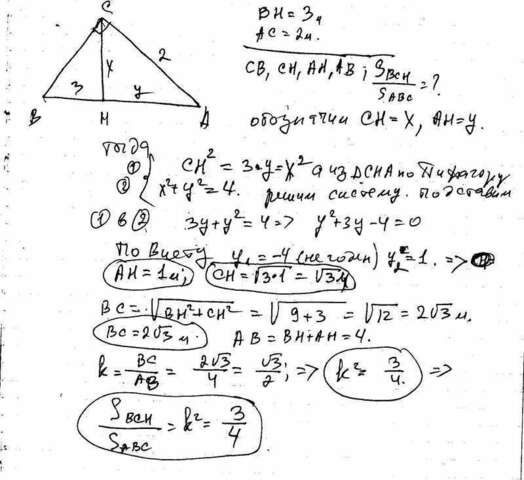 C
2
x
3
y
B
H
A
BH = 3м
AC = 2м.
CB, CH, AH, AB; S_BCH/S_ABC = ?
обозначим CH = x, AH = y.
Тогда
① CH² = 3·y = x² а из ΔCHA по Пифагору
② x² + y² = 4. решим систему. подставим
① в ② 3y + y² = 4 => y² + 3y - 4 = 0
По Виету y₁ = -4 (не годен) y₂ = 1. =>
AH = 1м; CH = √3·1 = √3 м
BC = √BH² + CH² = √9 + 3 = √12 = 2√3 м.
BC = 2√3 м. AB = BH + AH = 4.
k = BC/AB = 2√3/4 = √3/2; => k² = 3/4. =>
S_BCH/S_ABC = k² = 3/4